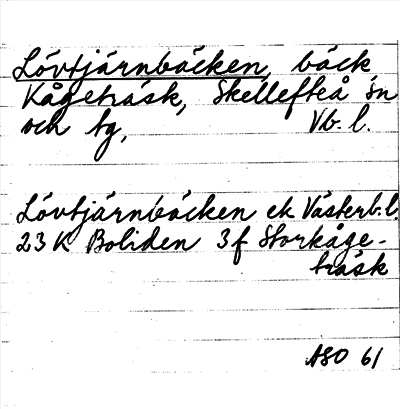 Lövtjärnbäcken, bäck
Kågeträsk, Skellefteå sn
och tg, Vb. l.
Lövtjärnbäcken ek Västerb. l.
23 K Boliden 3 f Storkåge-
träsk
ASO 61